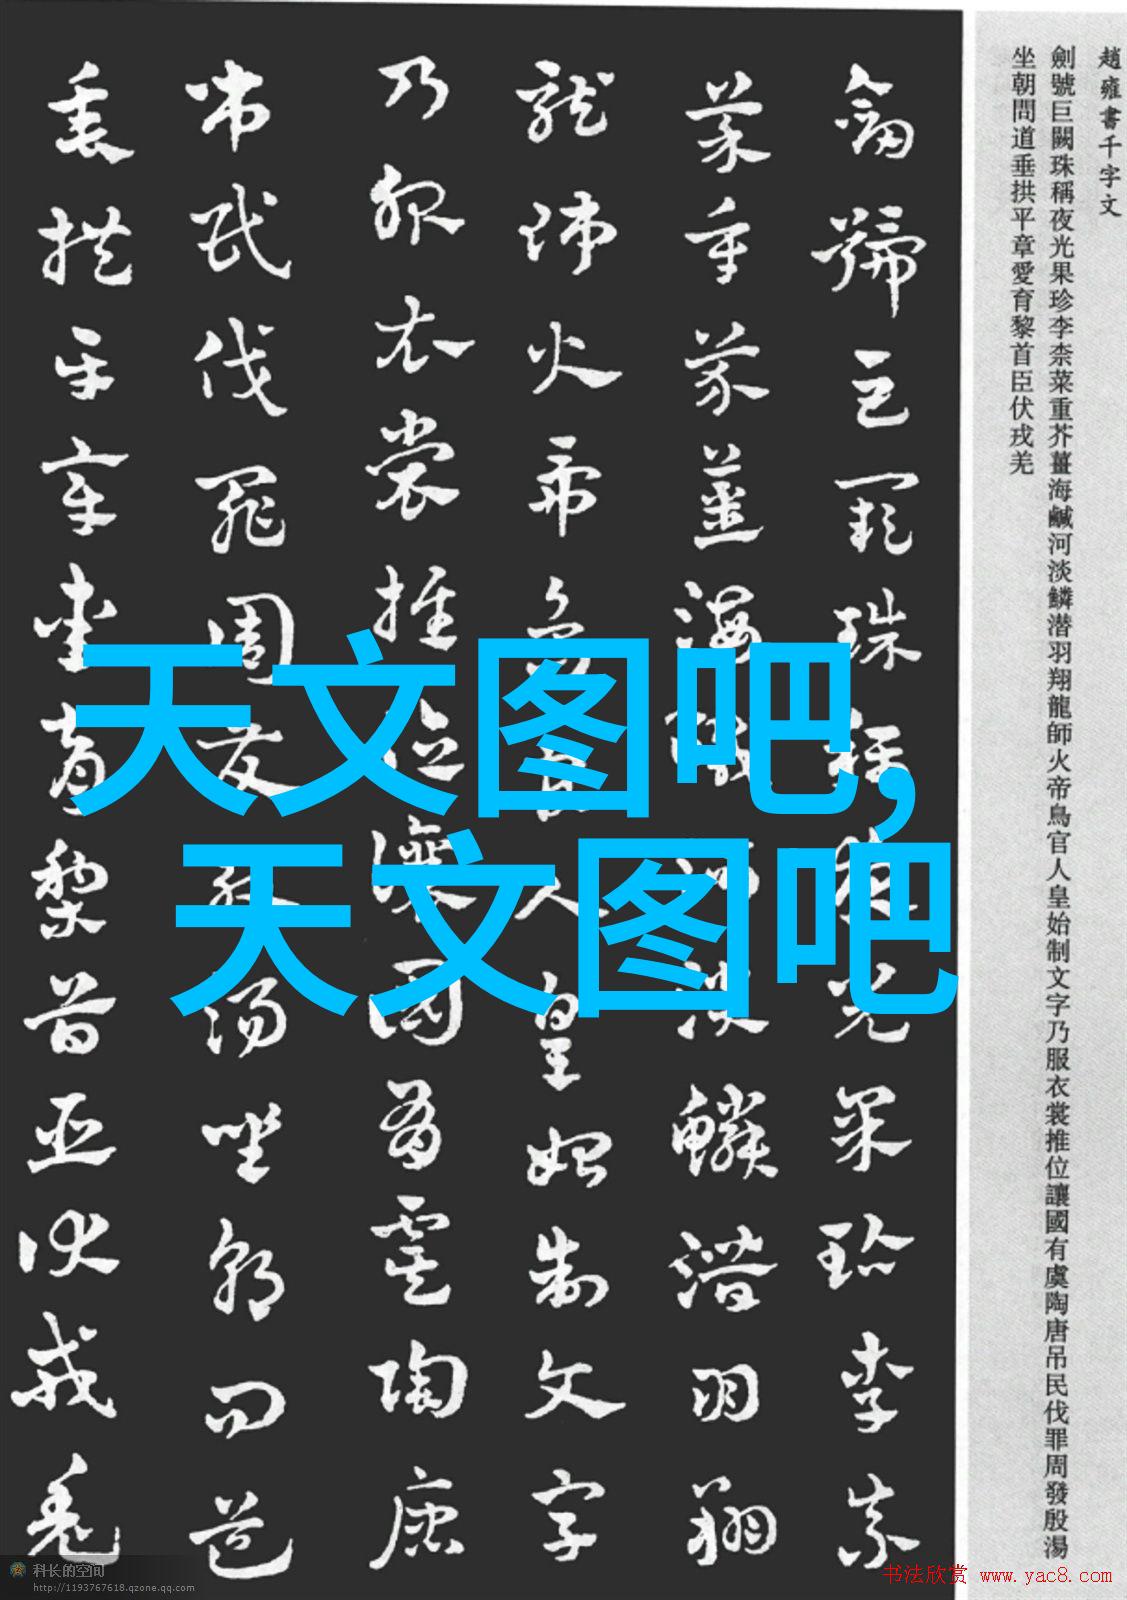 趙雍書千字文
劍號巨闕珠稱夜光果珍李柰菜重芥薑海鹹河淡鱗潛羽翔龍師火帝鳥官人皇始制文字乃服衣裳推位讓國有虞陶唐吊民伐罪周發殷湯
坐朝問道垂拱平章愛育黎首臣伏戎羌
劍號巨闕珠稱夜光果珍李柰
菜重芥薑海鹹河淡鱗潛羽翔
龍師火帝鳥官人皇始制文字
乃服衣裳推位讓國有虞陶唐
吊民伐罪周發殷湯坐朝問道
垂拱平章愛育黎首臣伏戎羌
天文图吧,
天文图吧
科长的空间
http://1193767618.qzone.qq.com
书法欣赏 www.yac8.com